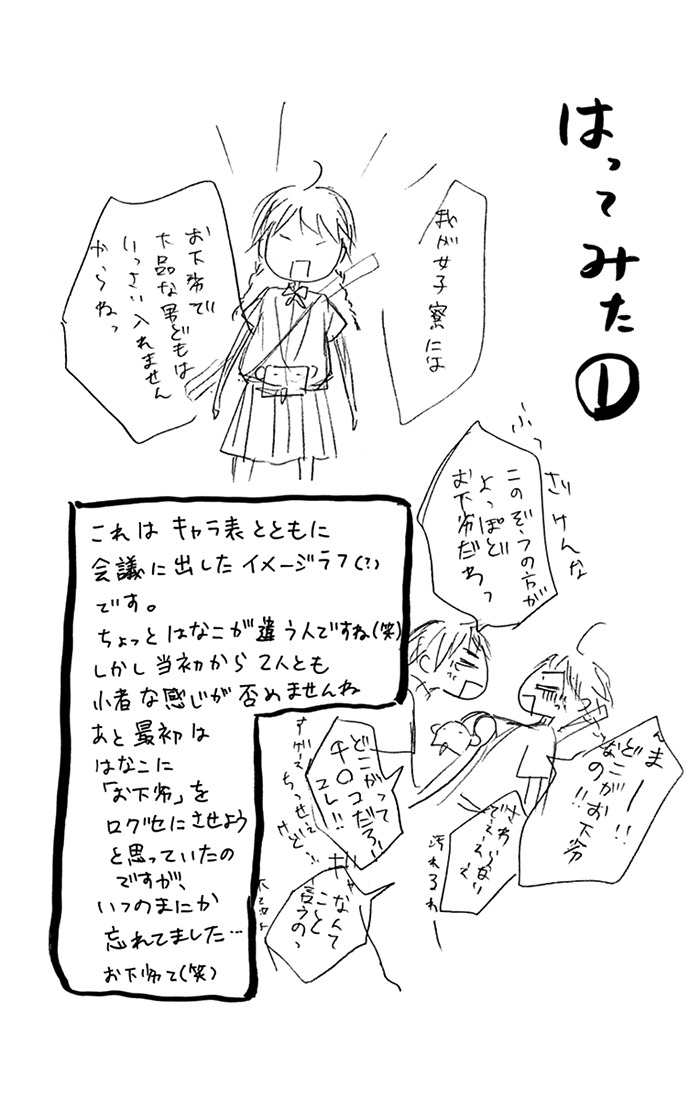 はってみた①
我が女子寮には
お下劣で
下品な男どもは
いっさい入れません
からねっ
ふっ
ざけんな
このぞうの方が
よっぽど
お下劣だわっ
まー!!
どこがお下劣
なのが!!
さわらない
でぇぇぇ
汚れるわー
どこがって
チ〇コだろ!!
コレ!!
ちっせぇ
けど…
ギャー
なんて
こと
言うのっ
これは キャラ表とともに
会議に出したイメージラフ(?)
です。
ちょっとはなこが違う人ですね(笑)
しかし当初から2人とも
小者な感じが否めませんね
あと最初は
はなこに
「お下劣」を
口グセにさせよう
と思っていたの
ですが、
いつのまにか
忘れてました…
お下劣て(笑)